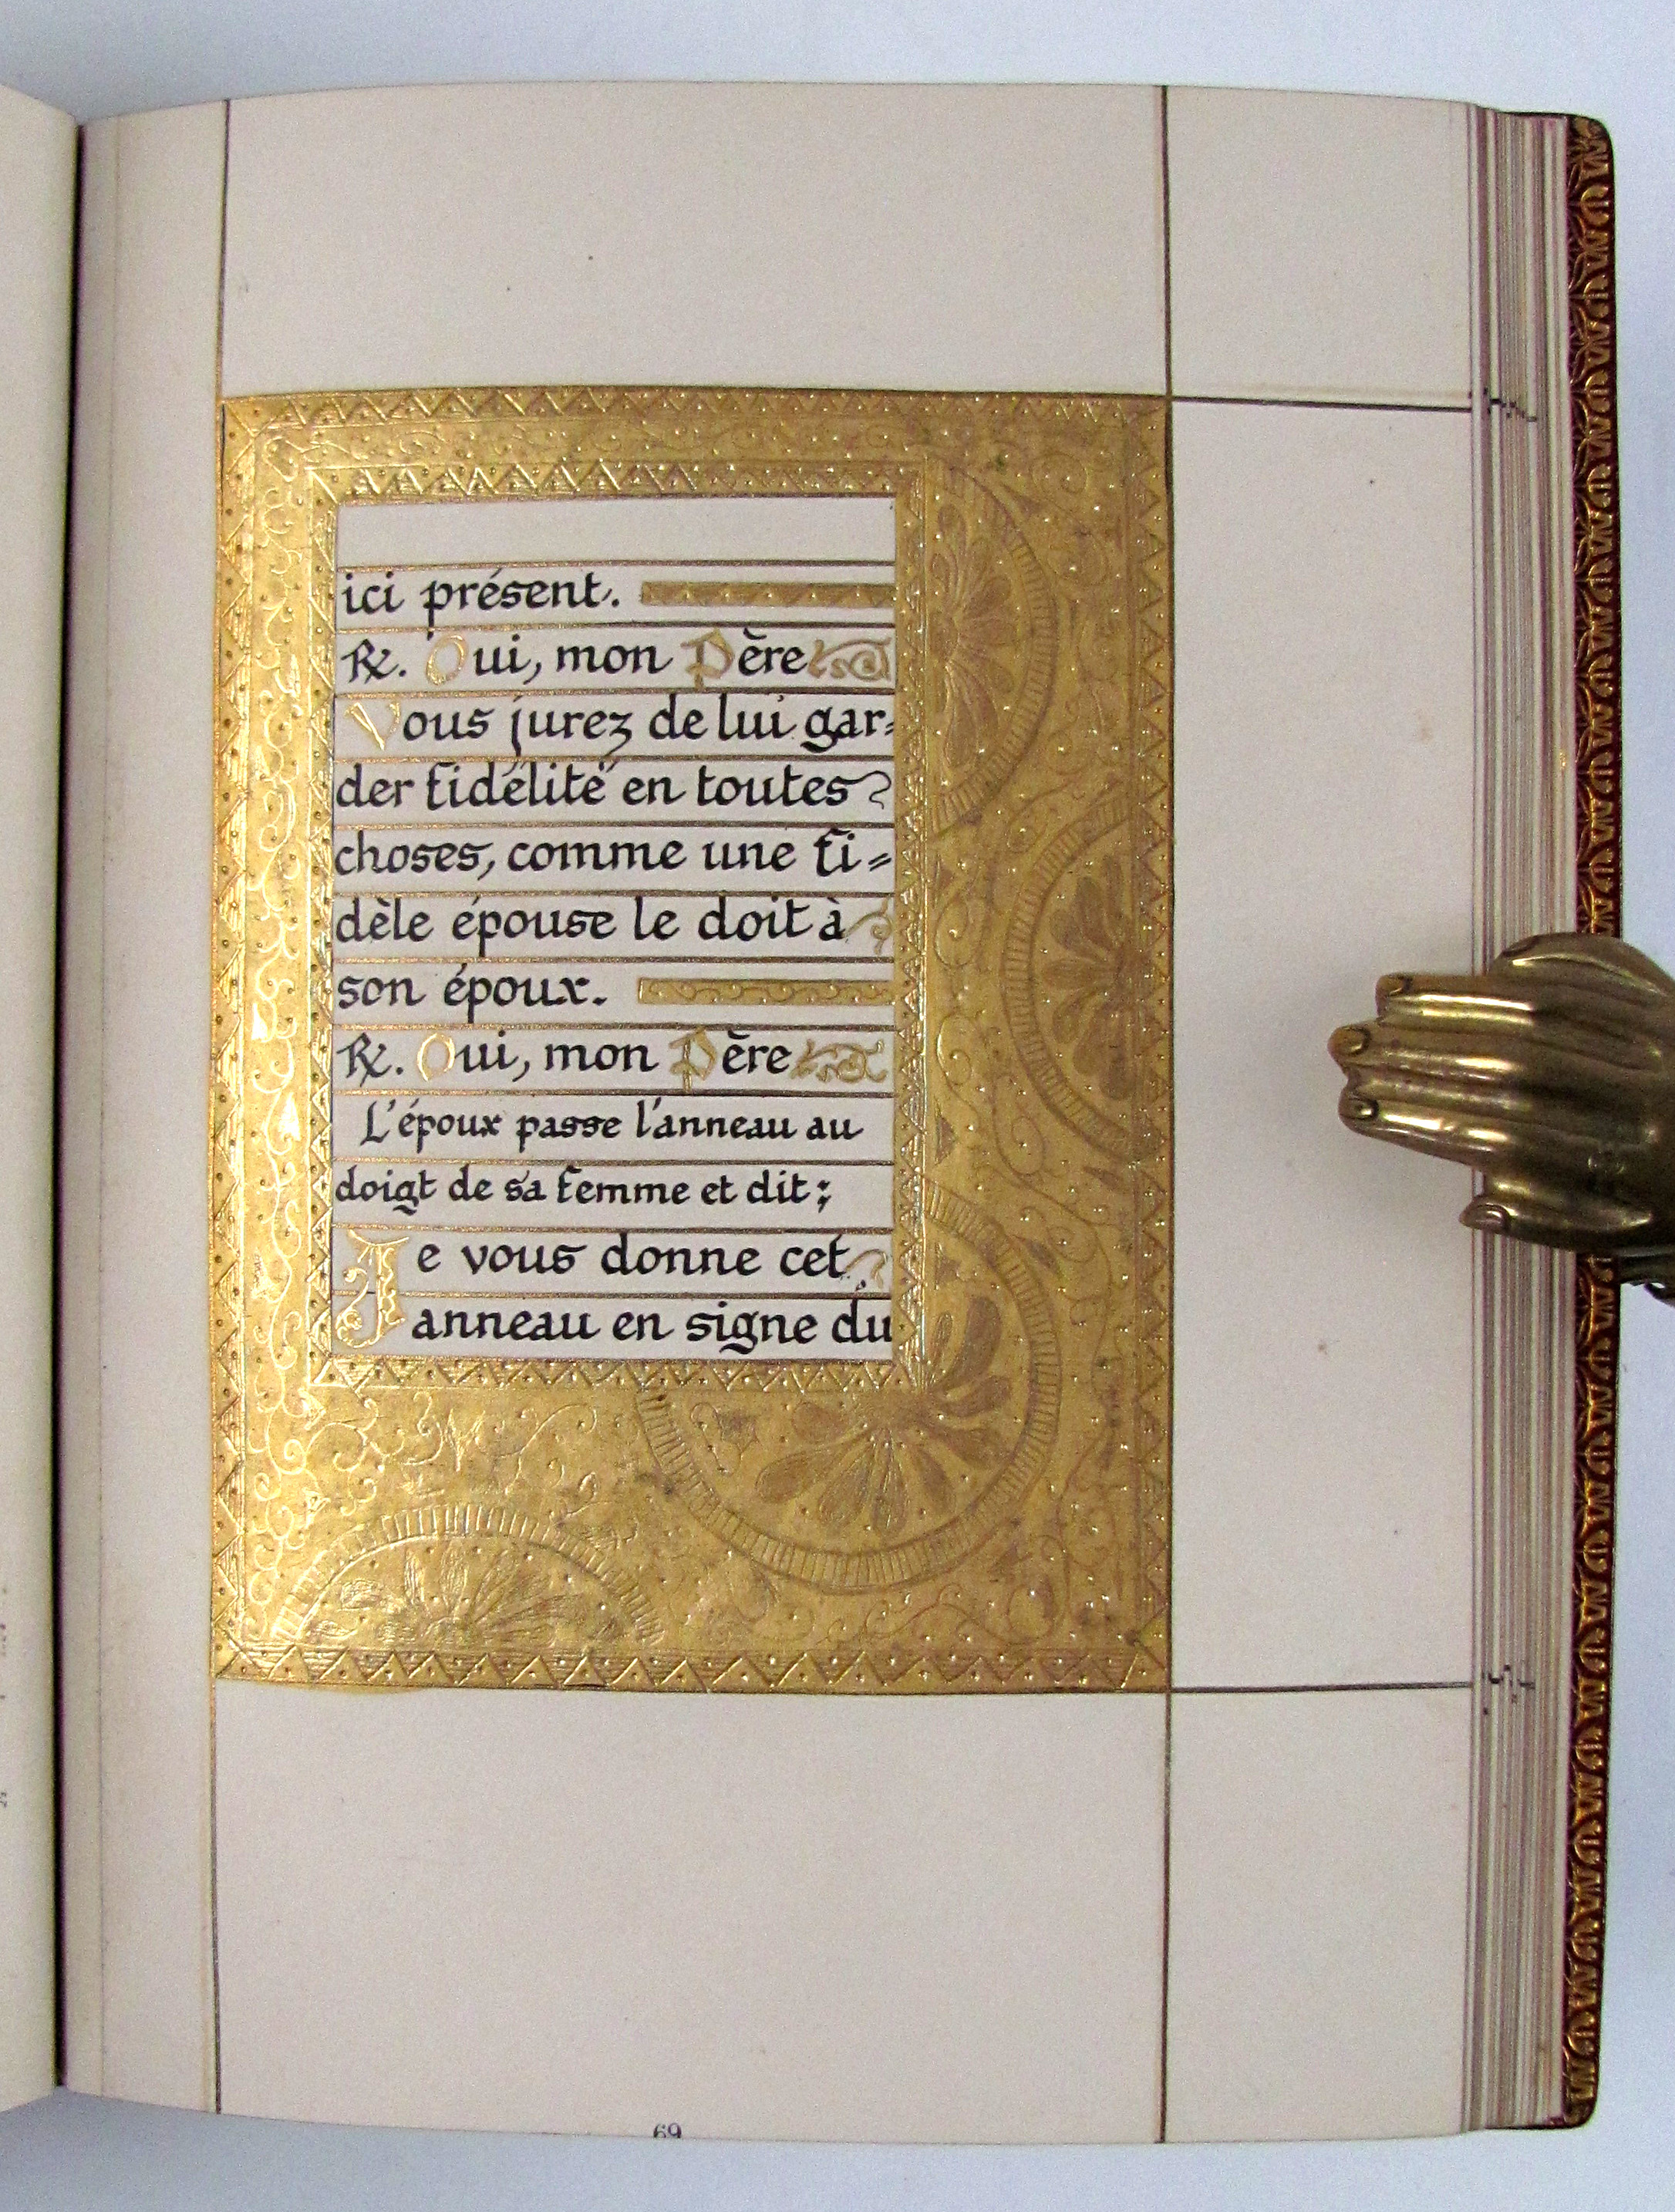 ici présent.
℟. Oui, mon Père
Vous jurez de lui gar=
der fidélité en toutes
choses, comme une fi=
dèle épouse le doit à
son époux.
℟. Oui, mon Père
L'époux passe l'anneau au
doigt de sa femme et dit :
Je vous donne cet
anneau en signe du
69